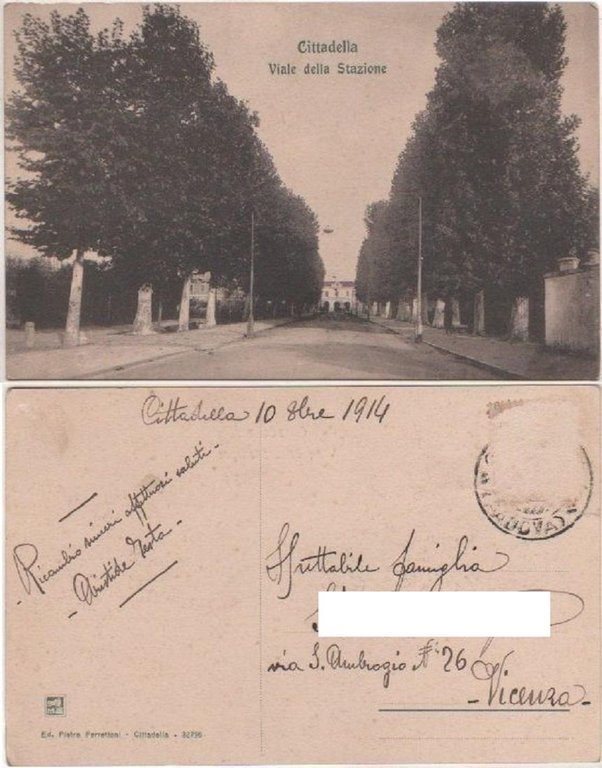 Cittadella
Viale della Stazione
Cittadella 10 8bre 1914
- Ricambio sinceri affettuosi saluti -
- Aristide Testa -
PADOVA
Spettabile famiglia
via S. Ambrogio N° 26
- Vicenza -
Ed. Pietro Perrettoni - Cittadella - 32796